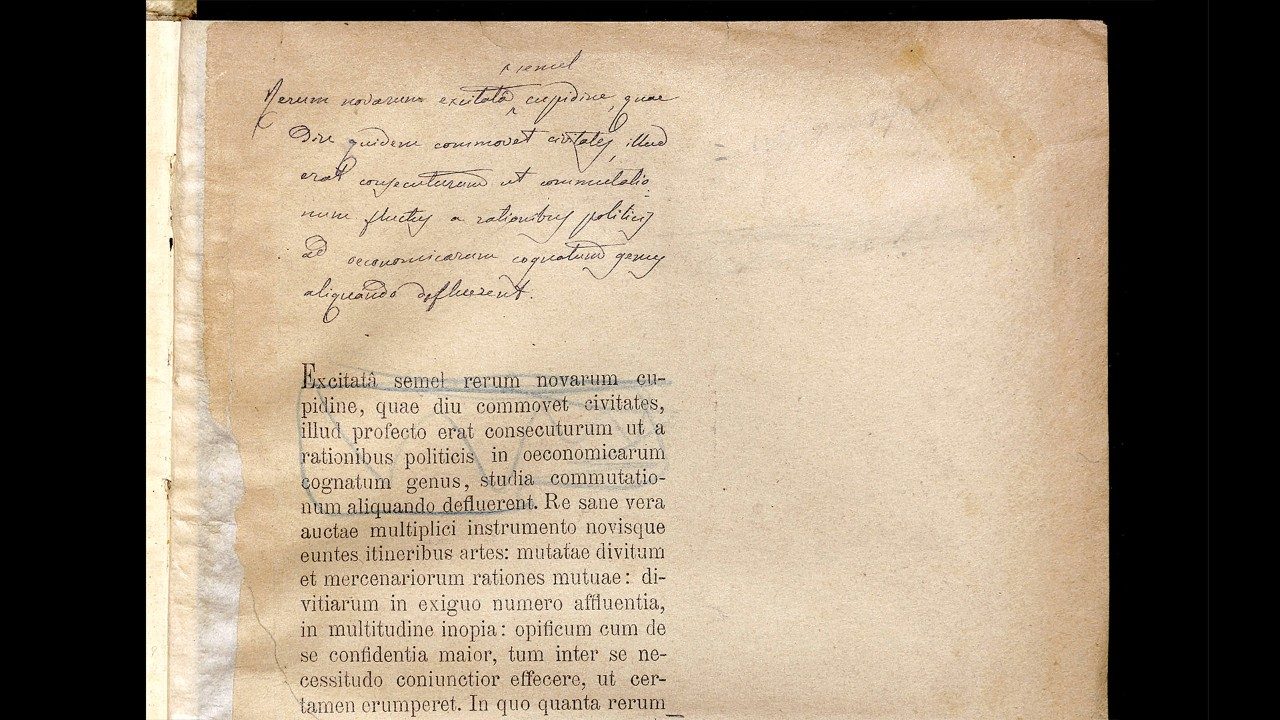 semel
Rerum novarum excitatâ ‸ cupidine, quae
diu quidem commovet civitates, illud
erat consecuturum ut commutatio
num fluctus a rationibus politicis
ad oeconomicarum cognatum genus
aliquando defluerent.
Excitatâ semel rerum novarum cu-
pidine, quae diu commovet civitates,
illud profecto erat consecuturum ut a
rationibus politicis in oeconomicarum
cognatum genus, studia commutatio-
num aliquando defluerent. Re sane vera
auctae multiplici instrumento novisque
euntes itineribus artes: mutatae divitum
et mercenariorum rationes mutuae: di-
vitiarum in exiguo numero affluentia,
in multitudine inopia: opificum cum de
se confidentia maior, tum inter se ne-
cessitudo coniunctior effecere, ut cer-
tamen erumperet. In quo quanta rerum